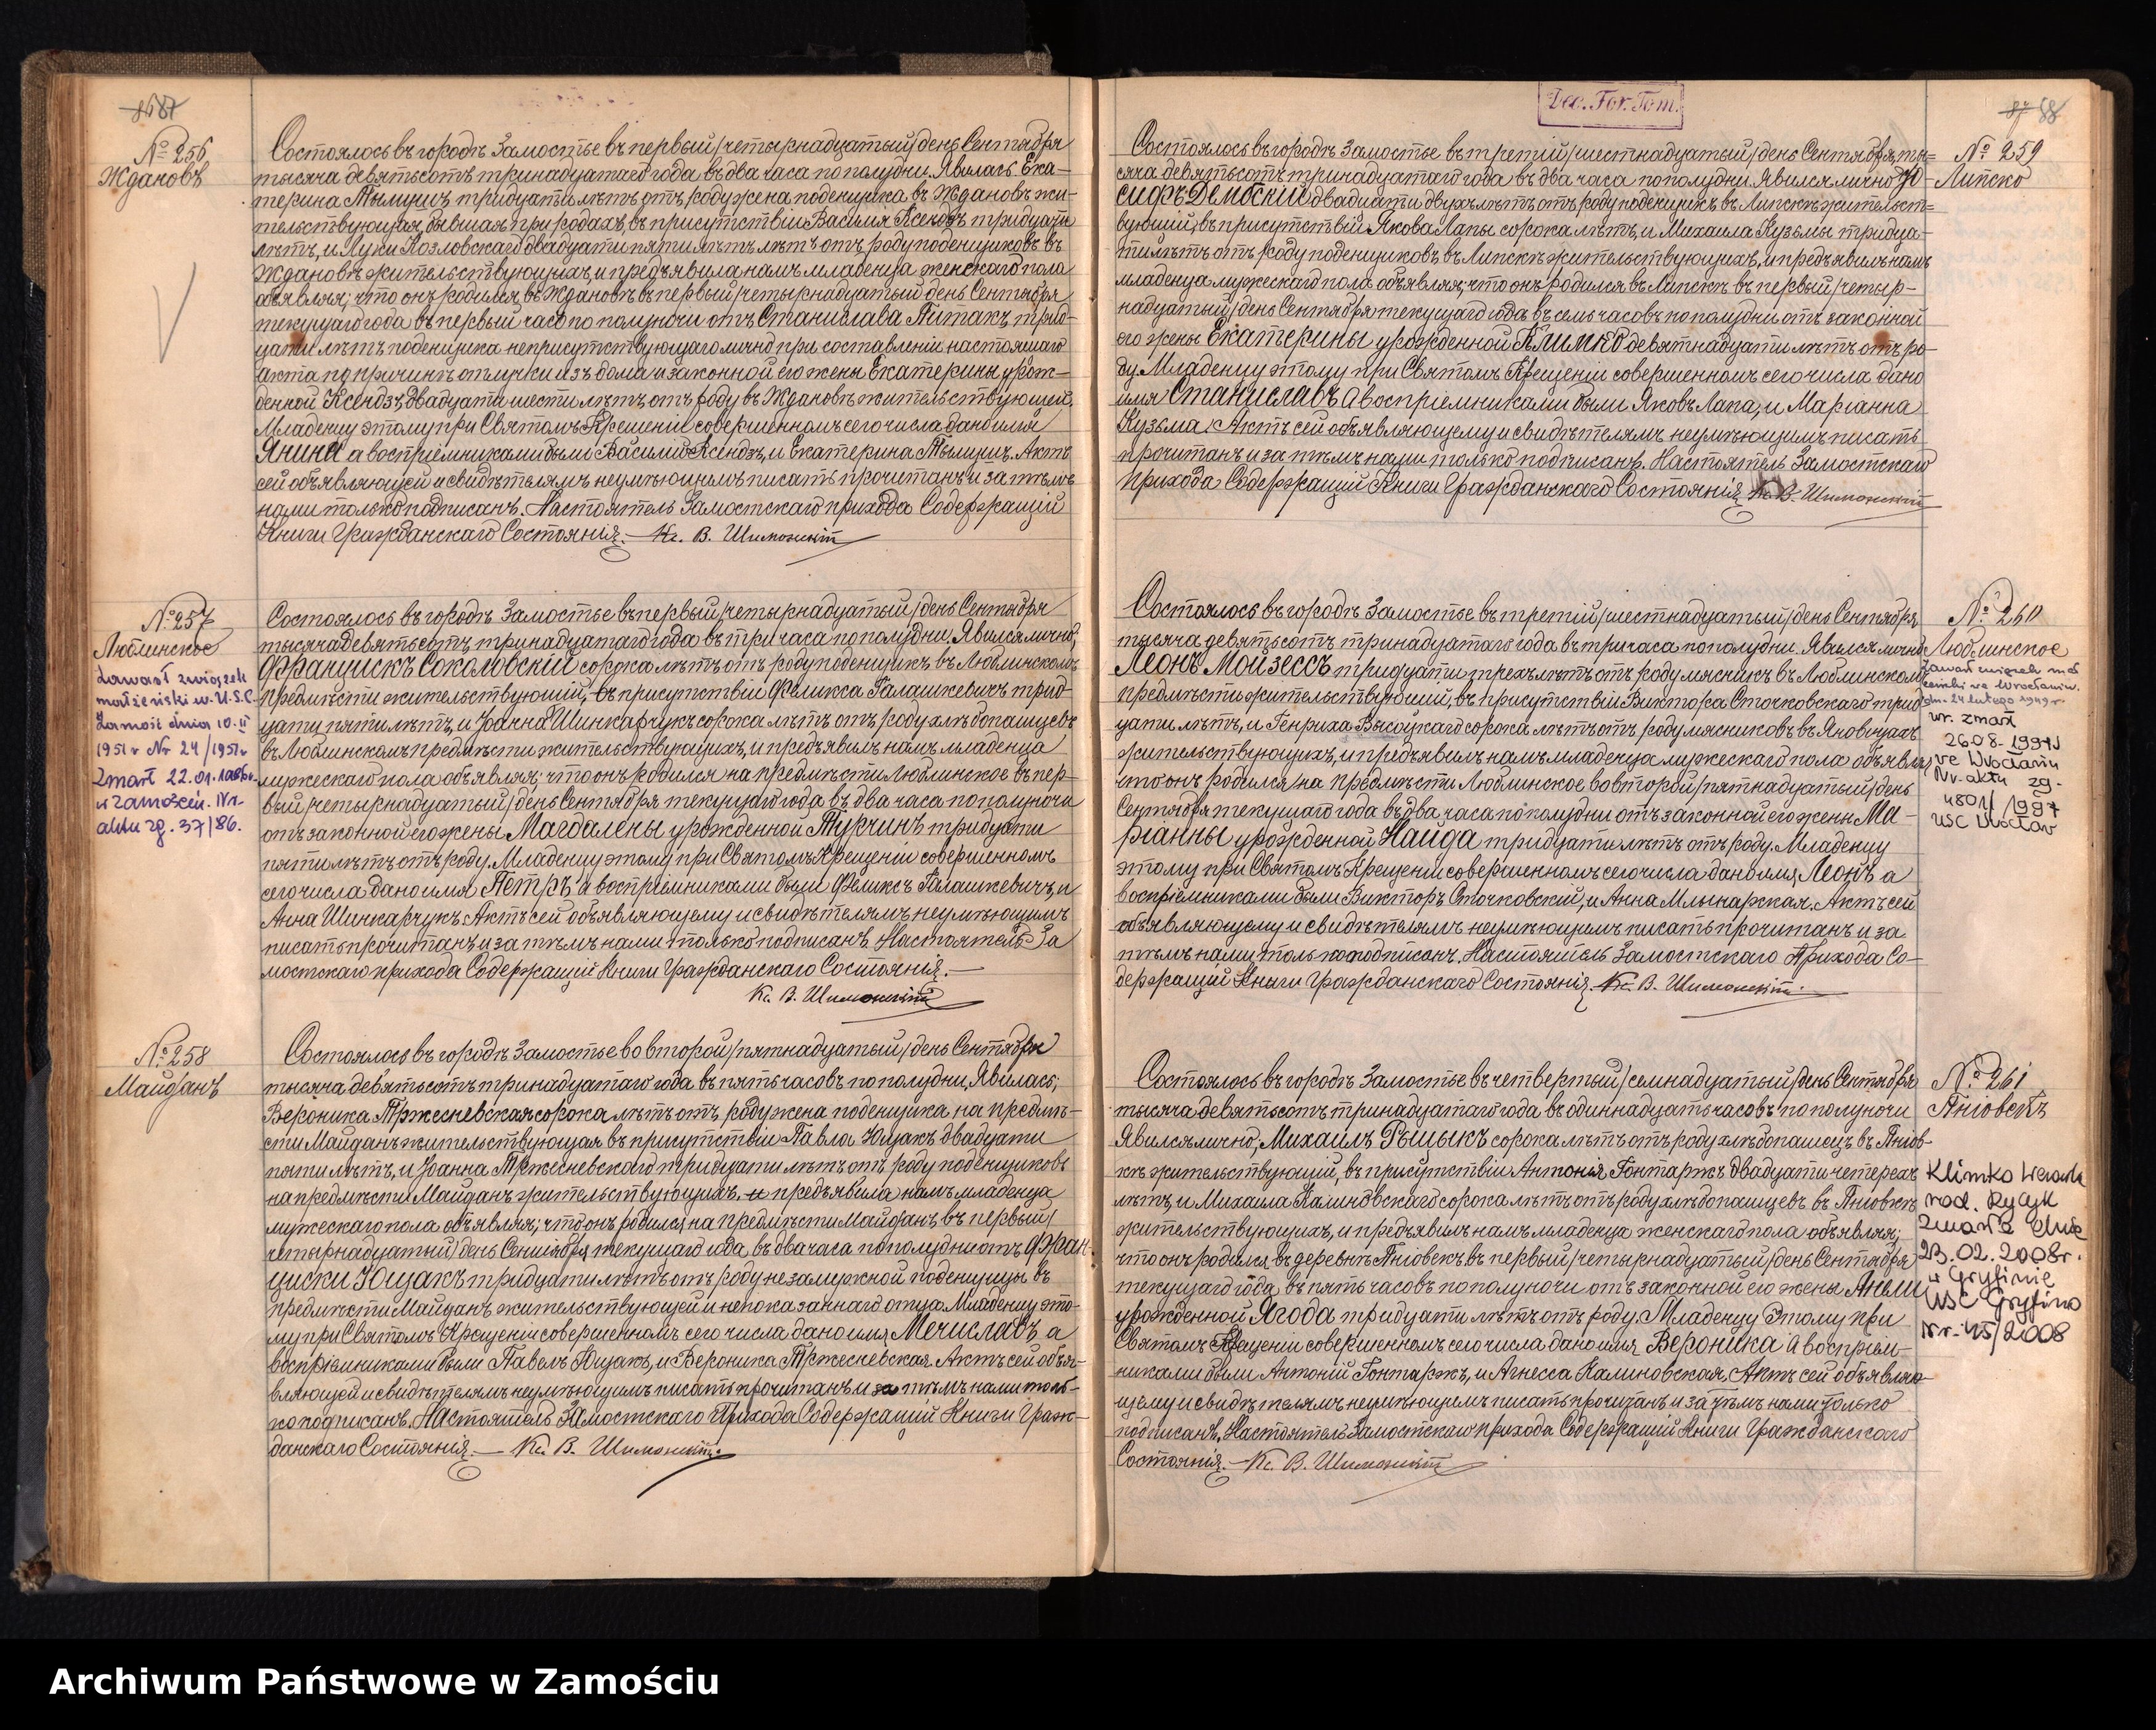 87
№ 256
Ждановъ
Состоялось въ городѣ Замостье въ первый /четырнадцатый/ день Сентября
тысяча девятьсотъ тринадцатаго года въ два часа по полудни. Явилась Ека-
терина Тымицъ тридцати лѣтъ отъ роду жена поденщика въ Ждановѣ жи-
тельствующая, бывшая при родахъ, въ присутствіи Василія Ксендзъ тридцати
лѣтъ, и Луки Козловскаго двадцати пяти лѣтъ лѣтъ отъ роду поденщиковъ въ
Ждановѣ жительствующихъ, и предъявила намъ младенца женскаго пола
объявляя; что онъ родился въ Ждановѣ въ первый /четырнадцатый день Сентября
текущаго года въ первый часъ по полуночи отъ Станислава Питакъ трид-
цати лѣтъ поденщика неприсутствующаго лично при составленіи настоящаго
акта по причинѣ отлучки изъ дома и законной его жены Екатерины урож-
денной Ксендзъ, двадцати шести лѣтъ отъ роду въ Ждановѣ жительствующей.
Младенцу этому при Святомъ Крещеніи совершенномъ сего числа дано имя
Янина а воспріемниками были Василій Ксендзъ, и Екатерина Тымицъ. Актъ
сей объявляющей и свидѣтелямъ неумѣющимъ писать прочитанъ и за тѣмъ
нами только подписанъ. Настоятель Замостскаго прихода Содержащій
Книги Гражданскаго Состоянія. — Кс. В. Шимонскій
№ 257
Люблинское
Zawarł związek
małżeński w U.S.C.
Zamość dnia 10.II
1951 r Nr 24/1951 r
Zmarł 22.01.1986 r.
w Zamościu. Nr.
aktu zg. 37/86.
Состоялось въ городѣ Замостье въ первый /четырнадцатый/ день Сентября
тысяча девятьсотъ тринадцатаго года въ три часа по полудни. Явился лично,
Францискъ Соколовскій сорока лѣтъ отъ роду поденщикъ въ Люблинскомъ
предмѣстіи жительствующій, въ присутствіи Феликса Галашкевичъ трид-
цати пяти лѣтъ, и Іоанна Шинкарчукъ сорока лѣтъ отъ роду хлѣбопашцевъ
въ Люблинскомъ предмѣстіи жительствующихъ, и предъявилъ намъ младенца
мужескаго пола объявляя; что онъ родился на предмѣстіи Люблинское въ пер-
вый /четырнадцатый/ день Сентября текущаго года въ два часа по полуночи
отъ законной его жены Магдалены урожденной Турчинъ тридцати
пяти лѣтъ отъ роду. Младенцу этому при Святомъ Крещеніи совершенномъ
сего числа дано имя Петръ а воспріемниками были Феликсъ Галашкевичъ, и
Анна Шинкарчукъ. Актъ сей объявляющему и свидѣтелямъ неумѣющимъ
писать прочитанъ и за тѣмъ нами только подписанъ. Настоятель За
мостскаго прихода Содержащій Книги Гражданскаго Состоянія. —
Кс. В. Шимонскій
№ 258
Майданъ
Состоялось въ городѣ Замостье во второй /пятнадцатый/ день Сентября
тысяча девятьсотъ тринадцатаго года въ пять часовъ по полудни. Явилась,
Вероника Тржесневская сорока лѣтъ отъ роду жена поденщика на предмѣ-
стіи Майданъ жительствующая въ присутствіи Павла Ющакъ двадцати
пяти лѣтъ, и Іоанна Тржесневскаго тридцати лѣтъ отъ роду поденщиковъ
на предмѣстіи Майданъ жительствующихъ, и предъявила намъ младенца
мужескаго пола объявляя; что онъ родился на предмѣстіи Майданъ, въ первый/
четырнадцатый/ день Сентября текущаго года, въ два часа по полудни отъ Фран-
циски Ющакъ тридцати лѣтъ отъ роду незамужной поденщицы въ
предмѣстіи Майданъ жительствующей и непоказаннаго отца. Младенцу это-
му при Святомъ Крещеніи совершенномъ сего числа дано имя Мечиславъ а
воспріемниками были Павелъ Ющакъ, и Вероника Тржесневская. Актъ сей объя-
вляющей и свидѣтелямъ неумѣющимъ писать прочитанъ и за тѣмъ нами толь-
ко подписанъ. Настоятель Замостскаго Прихода Содержащій Книги Граж-
данскаго Состоянія. — Кс. В. Шимонскій
Dec. For. Tom.
88
№ 259
Липско
Состоялось въ городѣ Замостье въ третій /шестнадцатый/ день Сентября ты-
сяча девятьсотъ тринадцатаго года въ два часа по полудни. Явился лично Іо-
сифъ Дембскій двадцати двухъ лѣтъ отъ роду поденщикъ въ Липскѣ жительст-
вующій, въ присутствіи Якова Лапы сорока лѣтъ, и Михаила Кузьмы тридца-
ти лѣтъ отъ роду поденщиковъ въ Липскѣ жительствующихъ, и предъявилъ намъ
младенца мужескаго пола объявляя; что онъ родился въ Липскѣ въ первый /четыр-
надцатый/ день Сентября текущаго года въ семь часовъ по полудни отъ законной
его жены Екатерины урожденной Климко девятнадцати лѣтъ отъ ро-
ду. Младенцу этому при Святомъ Крещеніи совершенномъ сего числа дано
имя Станиславъ а воспріемниками были Яковъ Лапа, и Маріанна
Кузьма. Актъ сей объявляющему и свидѣтелямъ неумѣющимъ писать
прочитанъ и за тѣмъ нами только подписанъ. Настоятель Замостскаго
Прихода Содержащій Книги Гражданскаго Состоянія Кс. В. Шимонскій
№ 260
Люблинское
Zawarł związek mał
żeński we Wrocławiu.
dn. 24 lutego 1949 r.
zmarł
26.08.1997
we Wrocławiu
Nr. aktu zg.
4801/ 1997
USC Wrocław
Состоялось въ городѣ Замостье въ третій /шестнадцатый/ день Сентября
тысяча девятьсотъ тринадцатаго года въ три часа по полудни. Явился лично
Леонъ Мойзессъ тридцати трехъ лѣтъ отъ роду мясникъ въ Люблинскомъ
предмѣстіи жительствующій, въ присутствіи Виктора Сточковскаго трид-
цати лѣтъ, и Генриха Высоцкаго сорока лѣтъ отъ роду мясниковъ въ Яновицахъ
жительствующихъ, и предъявилъ намъ младенца мужескаго пола объявляя;
что онъ родился на предмѣстіи Люблинское во второй /пятнадцатый/ день
Сентября текущаго года въ два часа по полудни отъ законной его жены Ма-
ріанны урожденной Найда тридцати лѣтъ отъ роду. Младенцу
этому при Святомъ Крещеніи совершенномъ сего числа дано имя Леонъ а
воспріемниками были Викторъ Сточковскій, и Анна Млынарская. Актъ сей
объявляющему и свидѣтелямъ неумѣющимъ писать прочитанъ и за
тѣмъ нами только подписанъ. Настоятель Замостскаго Прихода Со-
держащій Книги Гражданскаго Состоянія. Кс. В. Шимонскій
№ 261
Пніовекъ
Klimko Weronika
rod. Rycyk
zmarła dnia
23.02.2008r.
w Gryfinie
USC Gryfino
Nr. 45/2008
Состоялось въ городѣ Замостье въ четвертый /семнадцатый/ день Сентября
тысяча девятьсотъ тринадцатаго года въ одиннадцать часовъ по полуночи
Явился лично, Михаилъ Рыцыкъ сорока лѣтъ отъ роду хлѣбопашецъ въ Пніов-
кѣ жительствующій, въ присутствіи Антонія Гонтаржъ двадцати четерехъ
лѣтъ, и Михаила Калиновскаго сорока лѣтъ отъ роду хлѣбопашцевъ въ Пніовкѣ
жительствующихъ, и предъявилъ намъ младенца женскаго пола объявляя;
что онъ родился въ деревнѣ Пніовекъ въ первый /четырнадцатый/ день Сентября
текущаго года въ пять часовъ по полуночи отъ законной его жены Анели
урожденной Ягода тридцати лѣтъ отъ роду. Младенцу Этому при
Святомъ Крещеніи совершенномъ сего числа дано имя Вероника а воспріем-
никами были Антоній Гонтаржъ, и Агнесса Калиновская. Актъ сей объявляю-
щему и свидѣтелямъ неумѣющимъ писать прочитанъ и за тѣмъ нами только
подписанъ. Настоятель Замостскаго прихода Содержащій Книги Гражданскаго
Состоянія. — Кс. В. Шимонскій
Archiwum Państwowe w Zamościu